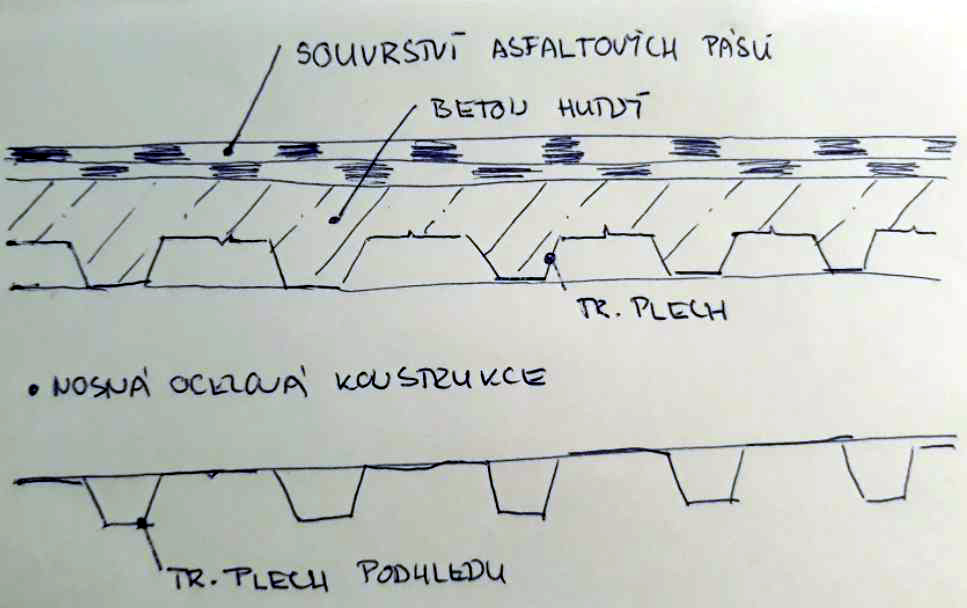 SOUVRSTVÍ ASFALTOVÝCH PÁSŮ
BETON HUTNÝ
TR. PLECH
• NOSNÁ OCELOVÁ KONSTRUKCE
TR. PLECH PODHLEDU